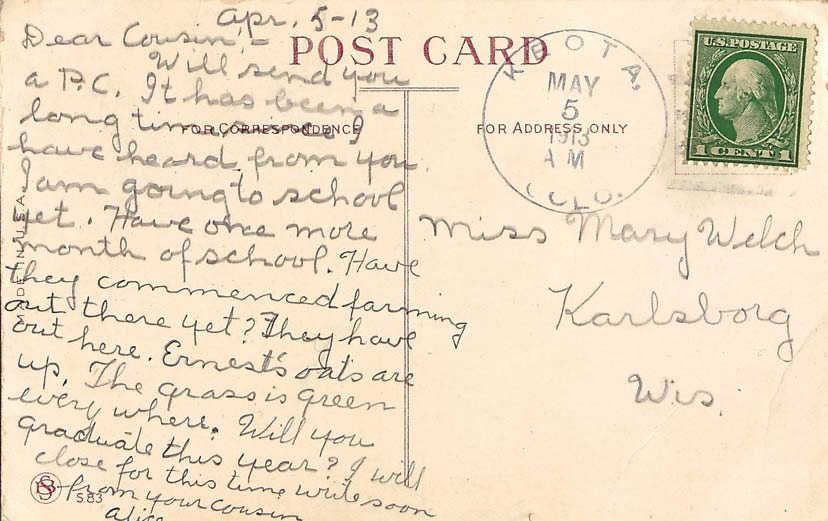 Apr. 5-13
Dear Cousin,-
Will send you
a P.C. It has been a
long time since I
have heard from you.
I am going to school
yet. Have one more
month of school. Have
they commenced farming
out there yet? They have
out here. Ernest's oats are
up. The grass is green
every where. Will you
graduate this year? I will
close for this time write soon
from your cousin
Alice
POST CARD
FOR CORRESPONDENCE
FOR ADDRESS ONLY
MADE IN U.S.A.
S.83
KEOTA,
MAY
5
1913
A M
COLO.
U.S. POSTAGE
1 CENT 1
Miss Mary Welch
Karlsborg
Wis.